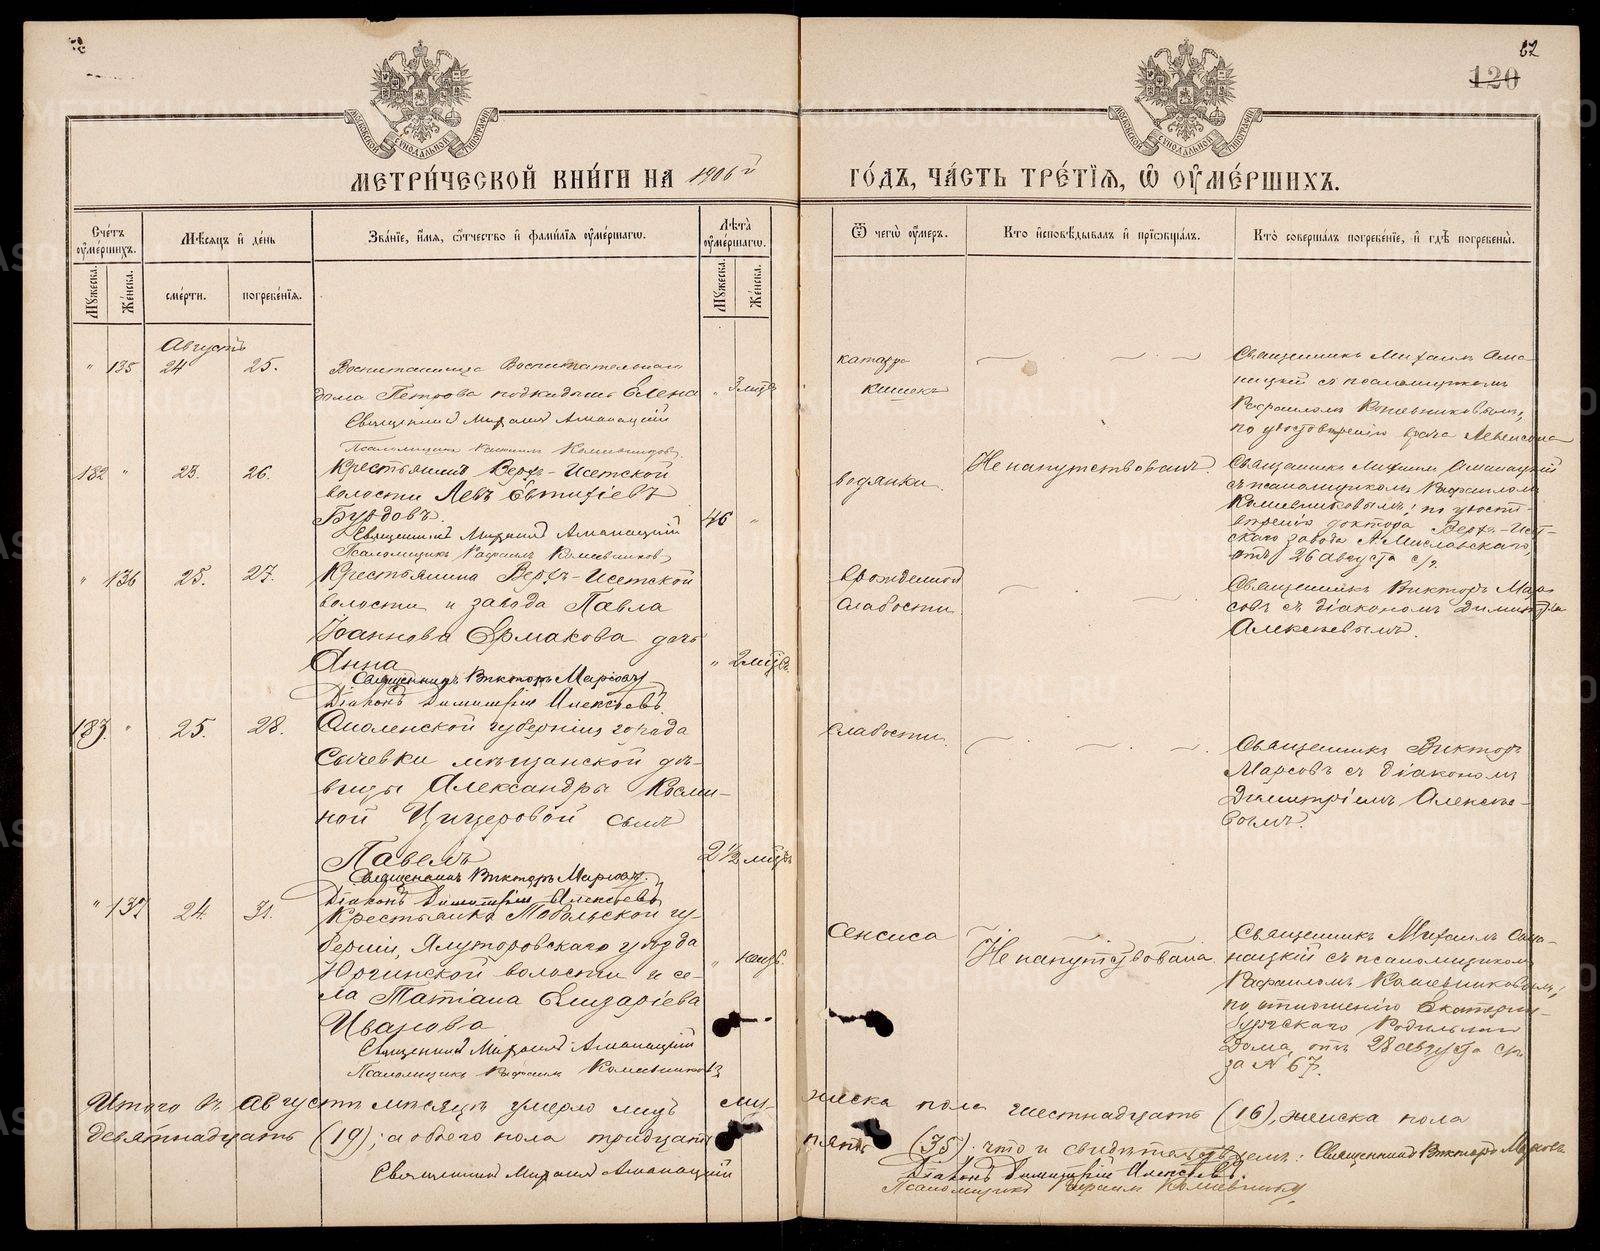 62
120
МОСКОВСКОЙ СѴНОДАЛЬНОЙ ТИПОГРАФІИ
МОСКОВСКОЙ СѴНОДАЛЬНОЙ ТИПОГРАФІИ
МЕТРИ́ЧЕСКОЙ КНИ́ГИ НА 1906й
ГО́ДЪ, ЧА́СТЬ ТРЕ́ТЇѦ, Ѡ ОУМЕ́РШИХЪ.
Сче́тъ оуме́ршихъ.
Мѣ́сяцъ и де́нь
Зва́нїе, и́мѧ, ѻ҆́тчество и фами́лїѧ оуме́ршагѡ.
Лѣ́та оуме́ршагѡ.
Ѿ чегѡ̀ оу́меръ.
Кто̀ и҆сповѣ́дывалъ и прїѡбща́лъ.
Кто̀ соверша́лъ погребе́нїе, и гдѣ̀ погребены̀.
Мꙋ́жеска.
Же́нска.
сме́рти.
погребе́нїѧ.
Мꙋ́жеска.
Же́нска.
Августъ
" 135 24 25.
Воспитанница Воспитательнаго
дома Петрова подкидышъ Елена
" 3 мѣс.
Священникъ Михаилъ Аманацкій
Псаломщикъ Рафаилъ Кожевниковъ.
катарра
кишекъ
Священникъ Михаилъ Ама-
нацкій съ псаломщикомъ
Рафаиломъ Кожевниковымъ,
по удостовѣренію врача Левенсона
182 " 23. 26.
Крестьянинъ Верхъ-Исетской
волости Левъ Евтихіевъ
Бурдовъ.
46 "
Священникъ Михаилъ Аманацкій
Псаломщикъ Рафаилъ Кожевниковъ
водянки.
Ненапутствованъ.
Священникъ Михаилъ Аманацкій
съ псаломщикомъ Рафаиломъ
Кожевниковымъ, по удосто-
вѣренію доктора Верхъ-Исет-
скаго завода А. Миславскаго,
отъ 26 августа с/г.
" 136 25. 27.
Крестьянина Верхъ-Исетской
волости и завода Павла
Іоаннова Ермакова дочь
Анна
" 2 мѣс.
Священникъ Викторъ Марсовъ
Діаконъ Димитрій Алексѣевъ.
врожденной
слабости
Священникъ Викторъ Мар-
совъ съ діакономъ Димитріемъ
Алексѣевымъ.
183. " 25. 28.
Смоленской губерніи города
Сычевки мѣщанской дѣ-
вицы Александры Косми-
ной Цицеровой сынъ
Павелъ
2 1/2 мѣс.
Священникъ Викторъ Марсовъ.
Діаконъ Димитрій Алексѣевъ
слабости.
Священникъ Викторъ
Марсовъ съ діакономъ
Димитріемъ Алексѣе-
вымъ.
" 137 24. 31.
Крестьянка Тобольской гу-
берніи, Ялуторовскаго уѣзда
Юргинской волости и се-
ла Татіана Елизаріева
Иванова
Священникъ Михаилъ Аманацкій
Псаломщикъ Рафаилъ Кожевниковъ
Сепсиса
Ненапутствована.
Священникъ Михаилъ Ама-
нацкій съ псаломщикомъ
Рафаиломъ Кожевниковымъ,
по отношенію Екатерин-
бургскаго Родильнаго
Дома, отъ 28 августа с/г.
за № 67.
Итого въ Августѣ мѣсяцѣ умерло лицъ мужеска пола шестнадцать (16), женска пола
девятнадцать (19); а обоего пола тридцать пять (35); что и свидѣтельствуемъ: Священникъ Викторъ Марсовъ
Священникъ Михаилъ Аманацкій
Діаконъ Димитрій Алексѣевъ.
Псаломщикъ Рафаилъ Кожевниковъ